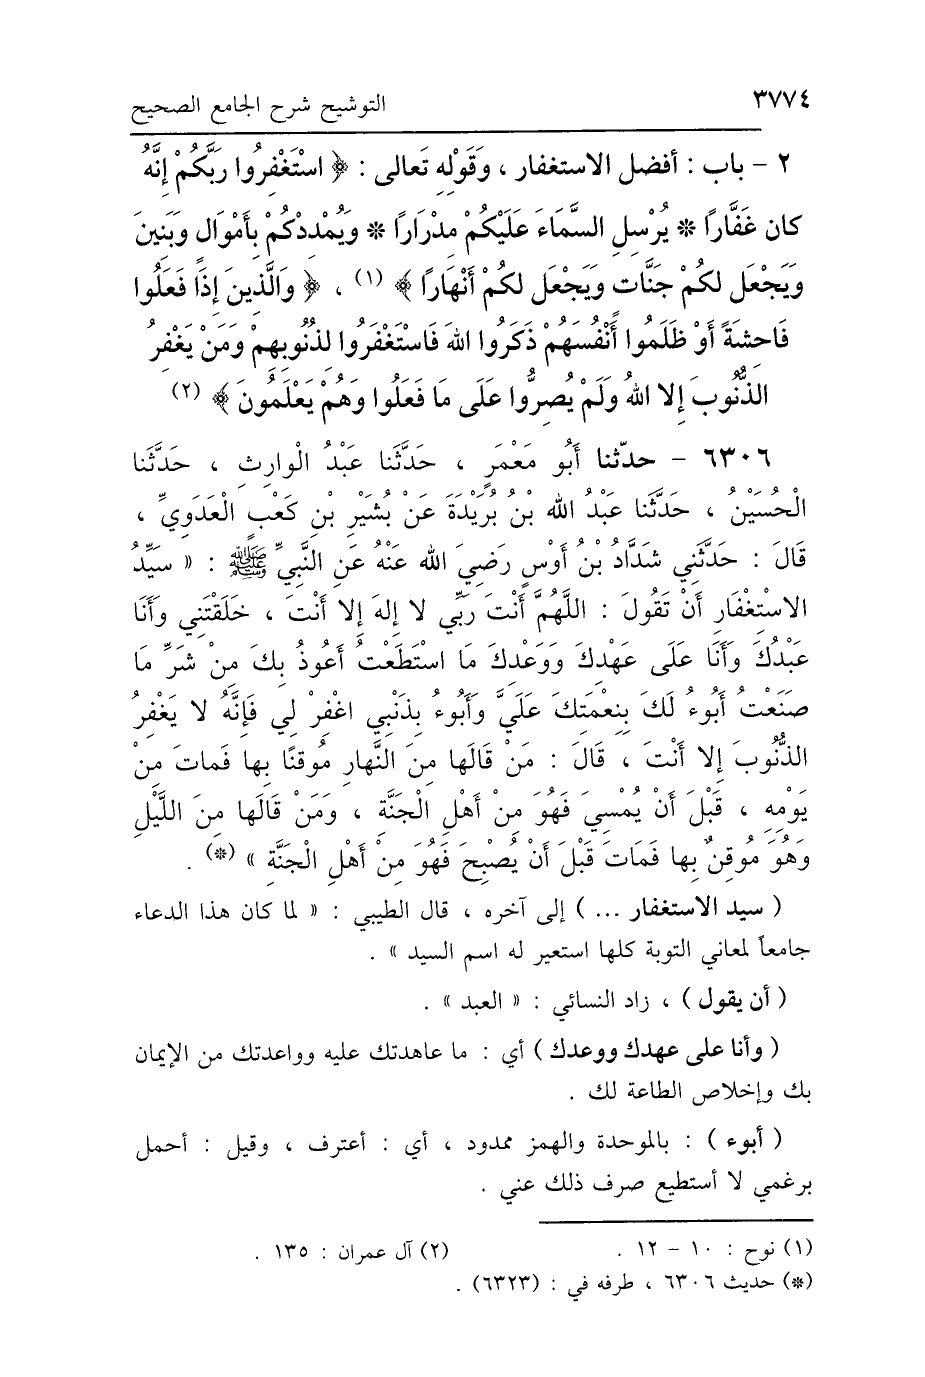 ٣٧٧٤ التوشيح شرح الجامع الصحيح
٢ - باب : أفضل الاستغفار ، وَقَوْلِهِ تَعالى : ﴿ اسْتَغْفِرُوا رَبَّكُمْ إِنَّهُ
كان غَفَّارًا * يُرْسِلِ السَّمَاءَ عَلَيْكُمْ مِدْرَارًا * وَيُمْدِدْكُمْ بِأَمْوَالٍ وَبَنِينَ
وَيَجْعَل لكُمْ جَنَّات وَيَجْعَل لكُمْ أَنْهَارًا ﴾ (١) ، ﴿ وَالَّذِينَ إِذَا فَعَلُوا
فَاحِشَةً أَوْ ظَلَمُوا أَنْفُسَهُمْ ذَكَرُوا اللهَ فَاسْتَغْفَرُوا لِذُنُوبِهِمْ وَمَنْ يَغْفِرُ
الذُّنُوبَ إِلا اللهُ وَلَمْ يُصِرُّوا عَلَى مَا فَعَلُوا وَهُمْ يَعْلَمُونَ ﴾ (٢)
٦٣٠٦ - حدّثنا أَبُو مَعْمَرٍ ، حَدَّثَنا عَبْدُ الْوارِثِ ، حَدَّثَنا
الْحُسَيْنُ ، حَدَّثَنا عَبْدُ الله بْنُ بُرَيْدَةَ عَنْ بُشَيْرِ بْنِ كَعْبٍ الْعَدَوِيِّ ،
قَالَ : حَدَّثَنِي شَدَّادُ بْنُ أَوْسٍ رَضِيَ الله عَنْهُ عَنِ النَّبِيِّ ﷺ : « سَيِّدُ
الاسْتِغْفَارِ أَنْ تَقُولَ : اللَّهُمَّ أَنْتَ رَبِّي لا إِلهَ إِلا أَنْتَ ، خَلَقْتَنِي وأَنَا
عَبْدُكَ وَأَنَا عَلَى عَهْدِكَ وَوَعْدِكَ مَا اسْتَطَعْتُ أَعُوذُ بِكَ مِنْ شَرِّ مَا
صَنَعْتُ أَبُوءُ لَكَ بِنِعْمَتِكَ عَلَيَّ وأَبُوءُ بِذَنْبِي اغْفِرْ لِي فَإِنَّهُ لا يَغْفِرُ
الذُّنُوبَ إِلا أَنْتَ ، قَالَ : مَنْ قَالَها مِنَ النَّهارِ مُوقِنًا بِها فَماتَ مِنْ
يَوْمِهِ ، قَبْلَ أَنْ يُمْسِيَ فَهُوَ مِنْ أَهْلِ الْجَنَّةِ ، وَمَنْ قَالَها مِنَ اللَّيْلِ
وَهُوَ مُوقِنٌ بِها فَمَاتَ قَبْلَ أَنْ يُصْبِحَ فَهُوَ مِنْ أَهْلِ الْجَنَّةِ » (*) .
( سيد الاستغفار ... ) إلى آخره ، قال الطيبي : « لما كان هذا الدعاء
جامعاً لمعاني التوبة كلها استعير له اسم السيد » .
( أن يقول ) ، زاد النسائي : « العبد » .
( وأنا على عهدك ووعدك ) أي : ما عاهدتك عليه وواعدتك من الإيمان
بك وإخلاص الطاعة لك .
( أبوء ) : بالموحدة والهمز ممدود ، أي : أعترف ، وقيل : أحمل
برغمي لا أستطيع صرف ذلك عني .
(١) نوح : ١٠ - ١٢ . (٢) آل عمران : ١٣٥ .
(*) حديث ٦٣٠٦ ، طرفه في : (٦٣٢٣) .